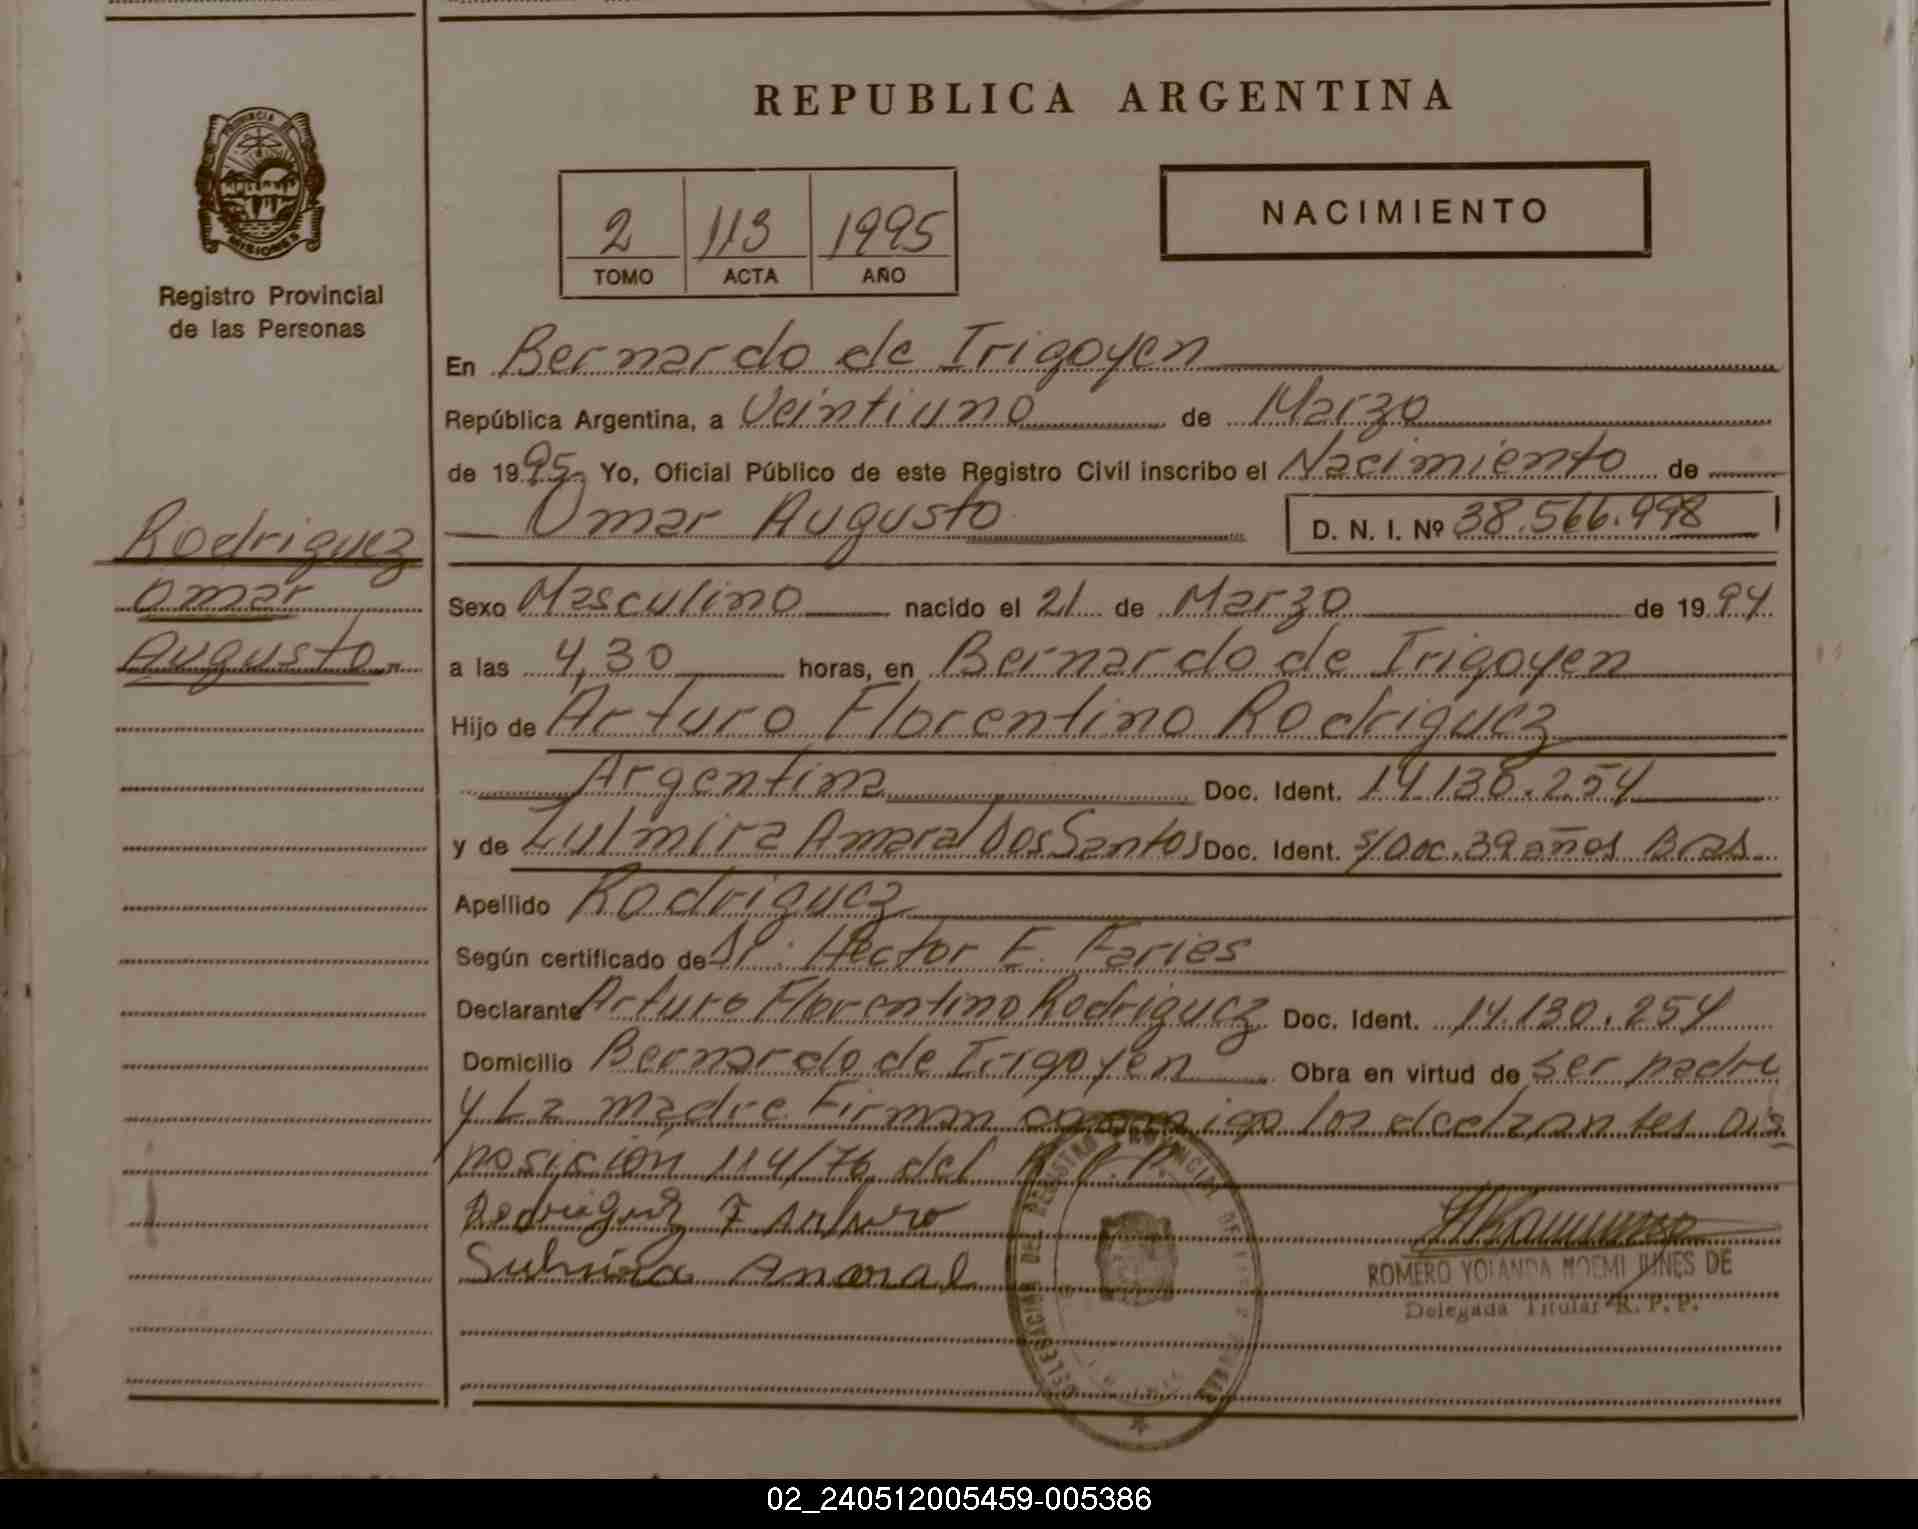 REPUBLICA ARGENTINA
PROVINCIA DE
MISIONES
Registro Provincial
de las Personas
2 113 1995
TOMO ACTA AÑO
NACIMIENTO
En Bernardo de Irigoyen
República Argentina, a Veintiuno de Marzo
de 1995 Yo, Oficial Público de este Registro Civil inscribo el Nacimiento de
Omar Augusto D. N. I. Nº 38.566.998
Rodriguez
Omar
Augusto
Sexo Masculino nacido el 21 de Marzo de 1994
a las 4,30 horas, en Bernardo de Irigoyen
Hijo de Arturo Florentino Rodriguez
Argentina Doc. Ident. 14.130.254
y de Zulmira Amaral Dos Santos Doc. Ident. s/Doc. 39 años Bras.
Apellido Rodriguez
Según certificado de Dr. Hector E. Faries
Declarante Arturo Florentino Rodriguez Doc. Ident. 14.130.254
Domicilio Bernardo de Irigoyen Obra en virtud de ser padre
y La madre. Firman conmigo los declarantes Dis
posición 114/76 del R.P.P.
Rodriguez F Arturo
Sulmira Amaral
DELEGACION DEL REGISTRO PROVINCIAL DE
ROMERO YOLANDA NOEMI JUNES DE
Delegada Titular R. P. P.
02_240512005459-005386